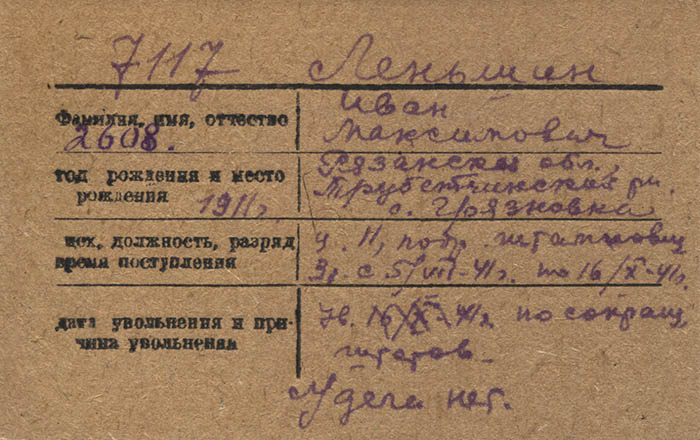 7117 Леньшин
Фамилия, имя, отчество Иван
2608. Максимович
год рождения и место Рязанская обл.,
рождения 1911г. Трубетчинский рн.
с. Грязновка
цех, должность, разряд ц. 11, подр. штамповщ
время поступления 3р. с 5/VIII-41г. по 16/X-41г.
дата увольнения и при- Ув. 16/X-41г. по сокращ,
чина увольнения штатов
Удела нет.